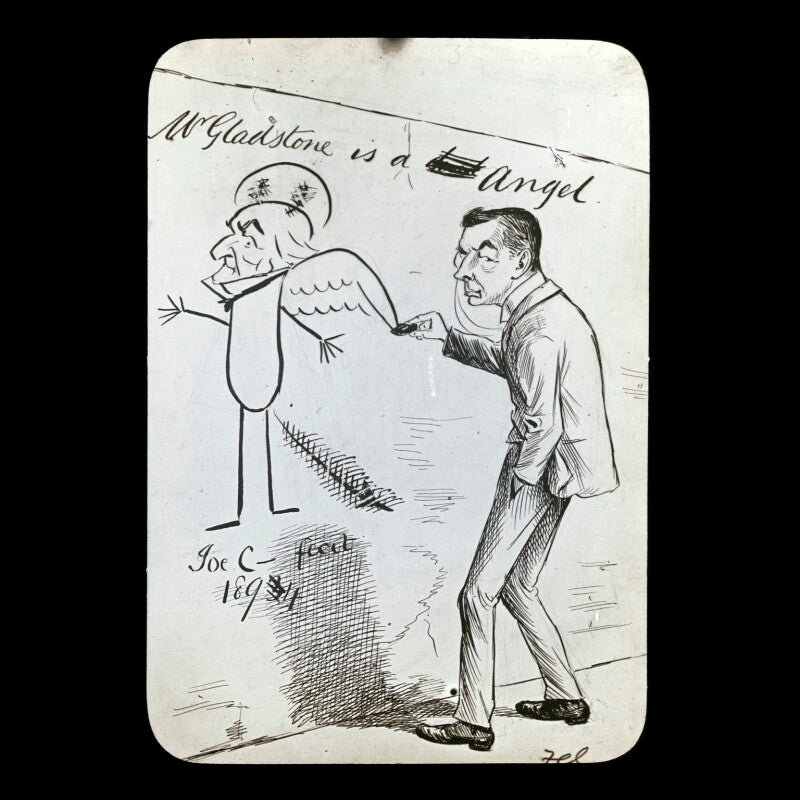 Mr Gladstone is a Angel.
Joe C— fecit
1894